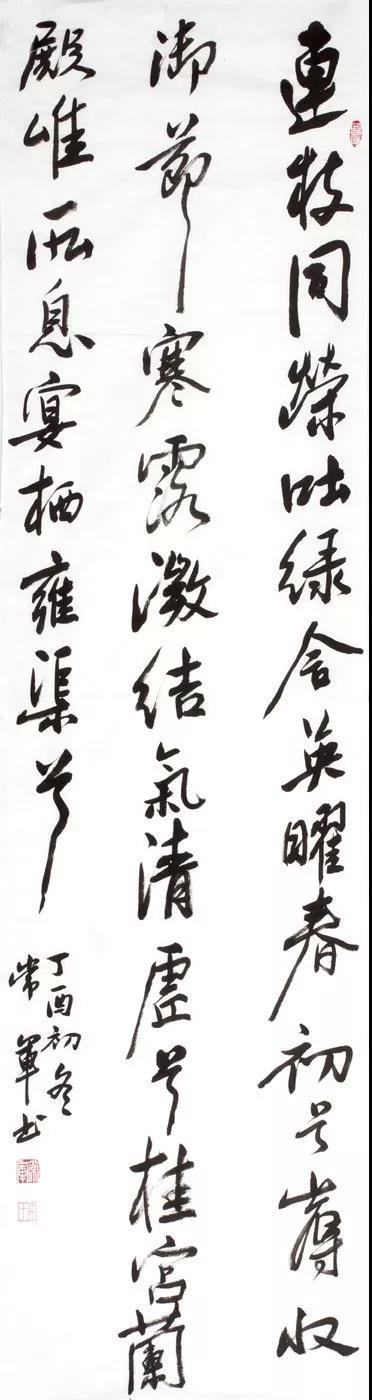 連枝同榮吐緑含英曜春初兮蓐收
御節寒露微結氣清虛兮桂宮蘭
殿唯所息宴栖雍渠兮
丁酉初冬
常軍书